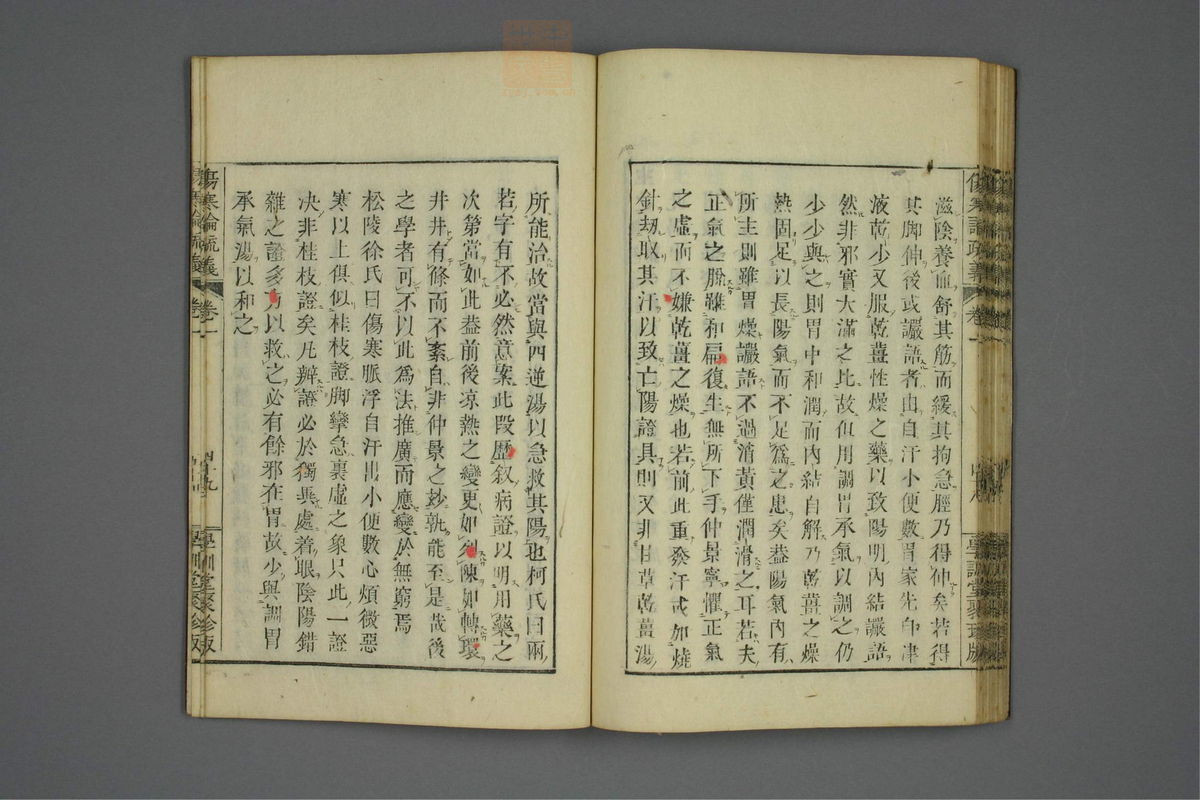 滋陰養血舒其筋而緩其拘急脛乃得伸矣若得
其脚伸後或讝語者由自汗小便數胃家先自津
液乾少又服乾薑性燥之藥以致陽明內結讝語
然非邪實大滿之比故但用調胃承氣以調之仍
少少與之則胃中和潤而內結自解乃乾薑之燥
熱固足以長陽氣而不足爲之患矣葢陽氣內有
所主則雖胃燥讝語不過消黃僅潤滑之耳若夫
正氣之脫雖和扁復生無所下手仲景寧懼正氣
之虛而不嫌乾薑之燥也若前此重發汗或加燒
針刼取其汗以致亡陽證具則又非甘草乾薑湯
所能治故當與四逆湯以急救其陽也柯氏曰兩
若字有不必然意案此段歷叙病證以明用藥之
次第當如此葢前後凉熱之變更如列陳如轉環
井井有條而不紊自非仲景之妙孰能至是哉後
之學者可不以此爲法推廣而應變於無窮焉
松陵徐氏曰傷寒脈浮自汗出小便數心煩微惡
寒以上俱似桂枝證脚攣急裏虛之象只此一證
决非桂枝證矣凡辨證必於獨異處着眼陰陽錯
雜之證多方以救之必有餘邪在胃故少與調胃
承氣湯以和之
傷寒論疏義
卷一
四十九
學訓堂聚珍版